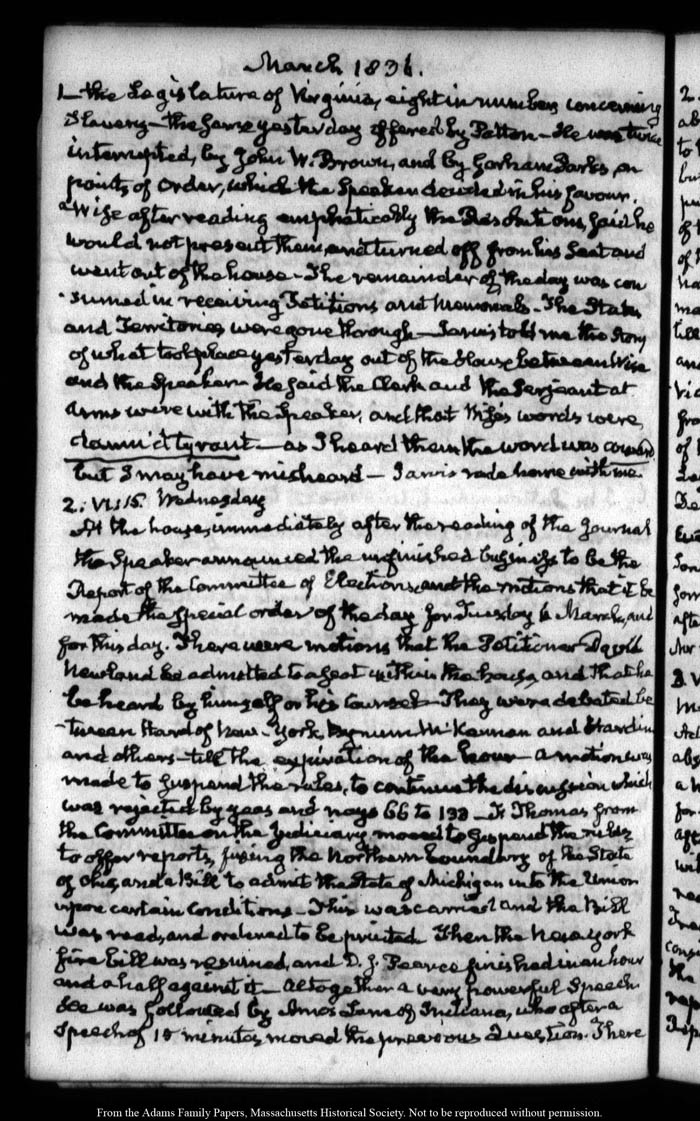 March 1836.
1. the Legislature of Virginia, eight in number, concerning
Slavery — the same yesterday offered by Patton — He was twice
interrupted, by John W. Brown, and by Gorham Parks, on
points of order, which the Speaker decided in his favour.
Wise after reading emphatically the Resolutions, said he
would not present them, and turned off from his Seat and
went out of the house — The remainder of the day was con
sumed in receiving Petitions and Memorials — The States
and Territories were gone through — Jarvis told me the story
of what took place yesterday out of the House between Wise
and the Speaker — He said the Clerk and the Serjeant at
Arms were with the Speaker, and that Wise's words were,
damn'd tyrant — as I heard them the word was coward
but I may have misheard — Jarvis rode home with me.
2. VI:15. Wednesday
At the house, immediately after the reading of the Journal
the Speaker announced the unfinished business to be the
Report of the Committee of Elections, and the motions that it be
made the special order of the day for Tuesday March, and
for this day. There were motions that the Petitioner David
Newland be admitted to a seat within the house, and that he
be heard by himself or his Counsel — They were debated be
tween Hard of New-York, Bynum, McKennan and Hardin
and others — till the expiration of the hour — a motion was
made to suspend the rules, to continue the discussion which
was rejected by yeas and nays 66 to — F. Thomas from
the Committee on the Judiciary moved to suspend the rules
to offer reports, fixing the Northern boundary of the State
of Ohio, and a Bill to admit the State of Michigan into the Union
upon certain conditions — This was carried and the Bill
was read, and ordered to be printed. Then the New York
fire bill was resumed, and D. J. Pearce finished in an hour
and a half against it — altogether a very powerful Speech.
He was followed by Amos Lane of Indiana, who after a
Speech of 15 minutes moved the previous Question. There
From the Adams Family Papers, Massachusetts Historical Society. Not to be reproduced without permission.